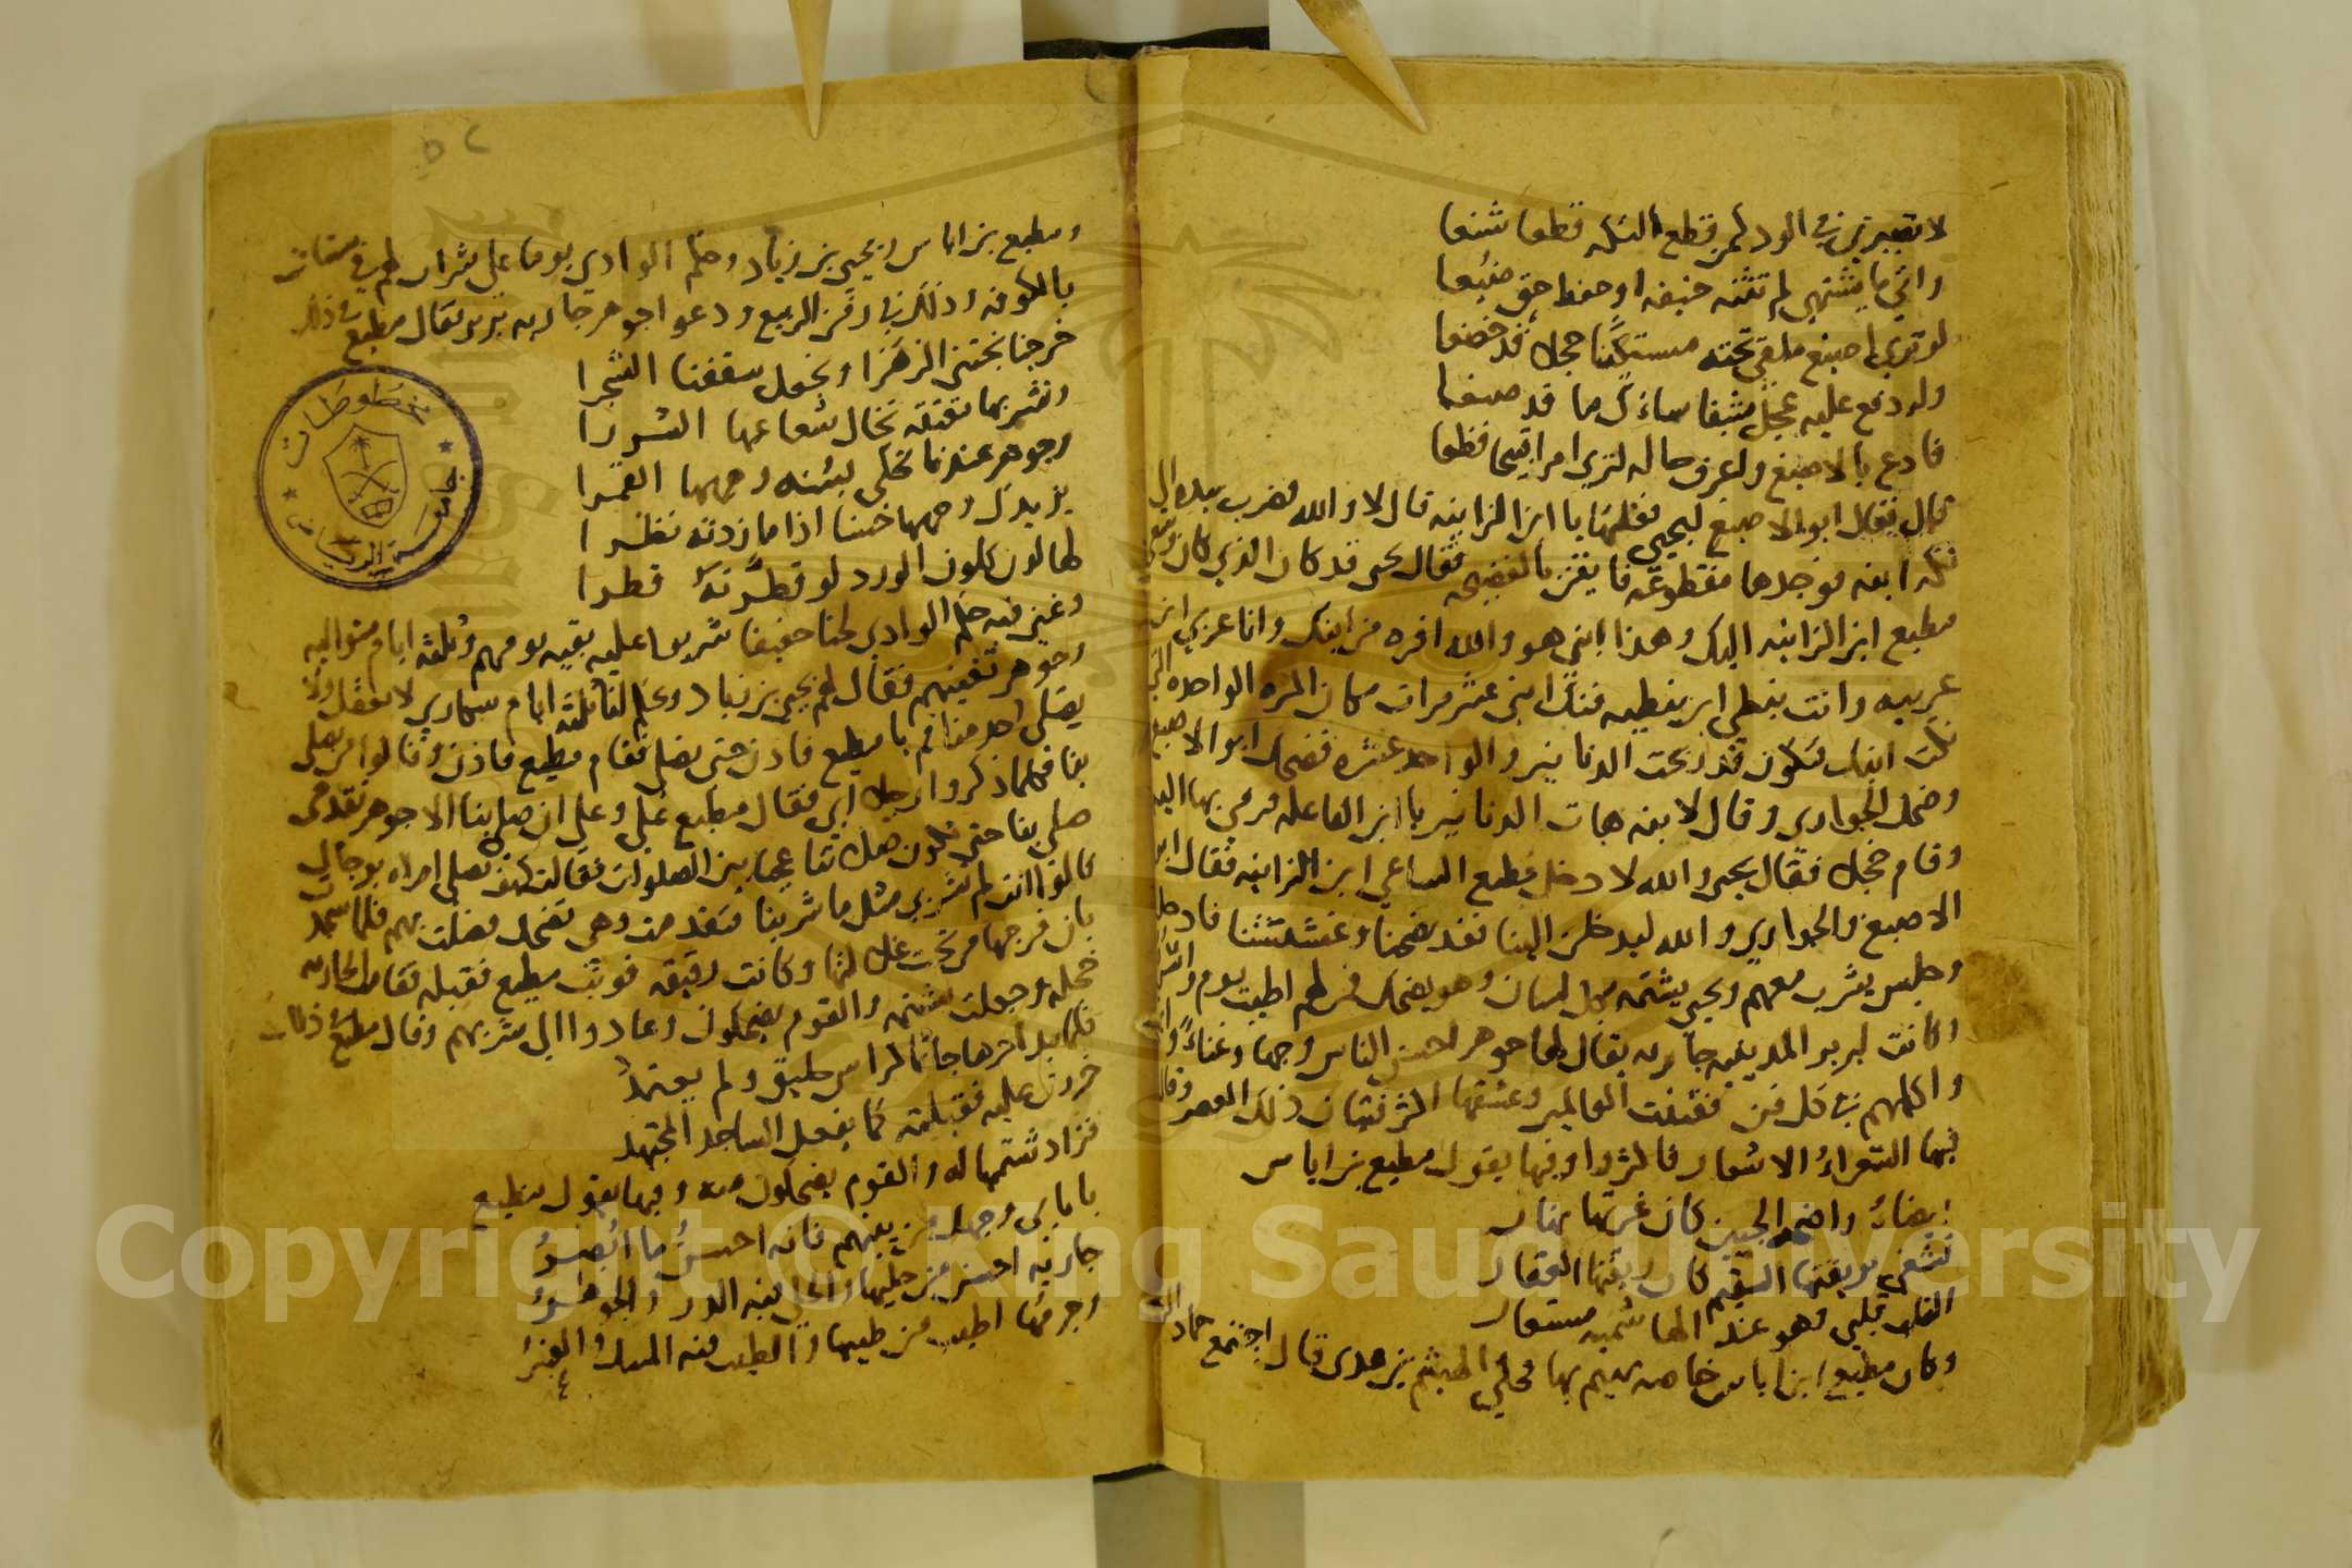 لا تصيرني في الود كمن قطع التكه قطعا شنعا
واتى ما يشتهي لم تثنه خيفه او حفظ حق ضيعا
لو ترى الاصبغ ملقى تحته مستكينا خجلا قد خضعا
وله دفع عليه عجل شبقا ساءك ما قد صنعا
فادع بالاصبغ واعرف حاله لترى امرا قبيحا فظعا
قال فقال ابو الاصبغ ليحيى فعلتها يا ابن الزانيه قال لا والله فضرب بيده الى
تكه ابنه فوجدها مقطوعه فايقن بالفضيحه فقال يحيى قد كان الذي كان وسعى
مطيع ابن الزانيه اليك وهذا ابني هو والله افره من ابنك وانا عربي ابن
عربيه وانت نبطي ابن نبطيه فنك ابني عشر مرات مكان المره الواحده التي
نكت ابنك فتكون قد ربحت الدنانير والواحد عشره فضحك ابو الاصبغ
وضحك الجواري وقال لابنه هات الدنانير يا ابن الفاعله فرمى بها اليه
وقام خجلا فقال يحيى والله لا دخل مطيع الساعي ابن الزانيه فقال ابو
الاصبغ والجواري والله ليدخلن الينا فقد نصحنا وغششتنا فادخل
وجلس يشرب معهم ويحيى يشتمه بكل لسان وهو يضحك
وكانت لبربر المدينيه جاريه يقال لها جوهر احسن الناس وجها وغناءً
واكملهم في كل فن فقتنت العالمين وعشقها اكثر فتيان ذلك العصر وقال
فيها الشعراءُ الاشعار فاكثروا وفيها يقول مطيع بن اياس
بيضاء واضحه الجبين كان غرتها نهار
تشفي بريقتها السقيم كان ريقتها العقار
القلب قلبي وهو عند الهاشميه مستعار
وكان مطيع ابن اياس خاصه يهيم بها فحكى الهيثم بن عدي قال اجتمع حماد
ومطيع بن اياس ويحيى بن زياد وحكم الوادي يوما على شراب لهم في بستان
بالكوفه وذلك في زمن الربيع ودعوا جوهر جاريه بربر فقال مطيع في ذلك
خرجنا نجتني الزهَرا ونجعل سقفنا الشجرا
ونشربها معتقه تخال شعاعها الشررا
وجوهر عندنا تحكي بسُنه وجهها القمرا
يزيدك وجهها حسنا اذا ما زدته نظرا
لها لون كلون الورد لو قطَّرتَهُ قطرا
وغنى فيه حكم الوادي لحنا خفيفا شربوا عليه بقيه يومهم وثلثه ايام متواليه
وجوهر تغنيهم فقال لهم يحيى بن زياد ويحكم لنا ثلثه ايام سكارى لا نعقل ولا
يصلي احد منا قم يا مطيع فاذن حتى نصلي فقام مطيع فاذن وقالوا من يصلي
بنا فكلما ذكروا رجلا ابى فقال مطيع علي وعلي ان صلى بنا الا جوهر تقدمي
صلي بنا حتى تكون صلاتنا عجبا بين الصلوات فقالت كيف تصلي امراه برجال
قالوا انت لم تشربي مثل ما شربنا فتقدمت وهي تضحك فصلت بهم فلما سجد
بان فرجها من تحت غلالتها وكانت رقيقه فوثب مطيع فقبله فقامت الجاريه
خجله وجعلت تشتمه والقوم يضحكون وعادوا الى شربهم وقال مطيع في ذلك
فلما بدا حرها جاثما كراس حليق ولم يعتمدُ
خررت عليه فقبلته كما يفعل الساجد المجتهد
فزاد شتمها له والقوم يضحكون منه وفيها يقول مطيع
يا بابي وجهك من بينهم فانه احسنُ ما ابُصرُ
جاريه احسن من حليها والحلي فيه الدرُ والجوهرُ
وجرمُها اطيب من طيبها والطيب فيه المسك والعنبرُ
مخطوطات
جامعة الرياض
Copyright © King Saud University